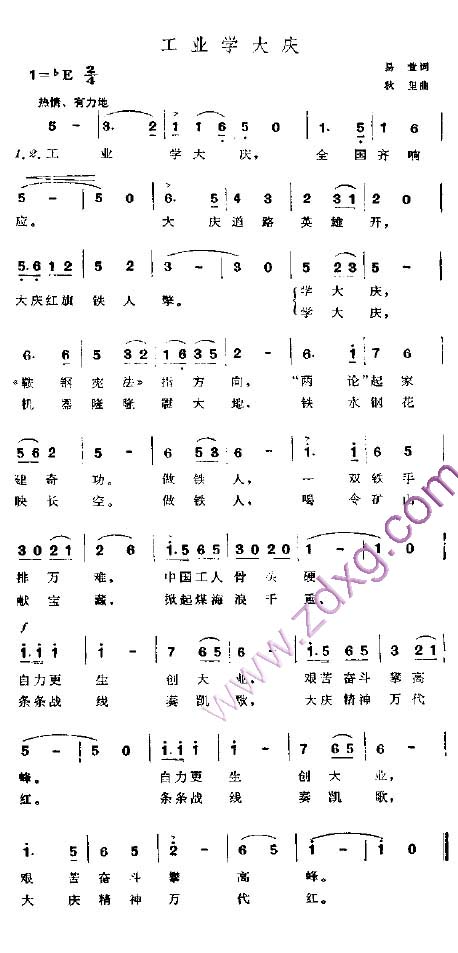 工业学大庆
1=♭E 2/4
易 萱词
秋 里曲
热情、有力地
5 - | 3. 2 | 1 1 6 5 0 | 1. 5 | 1 6
1.2.工 业 学大庆， 全国齐响
5 - | 5 0 | 6. 5 | 4 3 | 2 31 | 2 0
应。 大庆道路英雄开，
5.6 1 2 | 5 2 | 3 - | 3 0 | 5 23 | 5 -
大庆红旗铁人擎。 学大庆，
学大庆，
6. 6 | 5 32 | 1 6 35 | 2 - | 6. i | 7 6
《鞍钢宪法》指方向，“两论”起家
机器隆隆震大地，铁水钢花
5 6 2 | 5 - | 6 53 | 6 - | i. i | 6 5
建奇功。做铁人，一双铁手
映长空。做铁人，喝令矿山
3 0 2 1 | 2 6 | i.5 6 5 | 3 0 2 0 | 1 - | 1 0
排万难。中国工人骨头硬，
献宝藏。掀起煤海浪千重，
f
i.i i i | i - | 7 65 | 6 - | i.5 6 5 | 3 2 1
自力更生创大业，艰苦奋斗攀高
条条战线奏凯歌，大庆精神万代
5 - | 5 0 | i.i i i | i - | 7 65 | 6 -
峰。 自力更生创大业，
红。 条条战线奏凯歌，
i. 5 | 6 5 | 2 - | 6 5 6 | i - | i 0
艰苦奋斗攀高峰。
大庆精神万代红。
www.zdxg.com